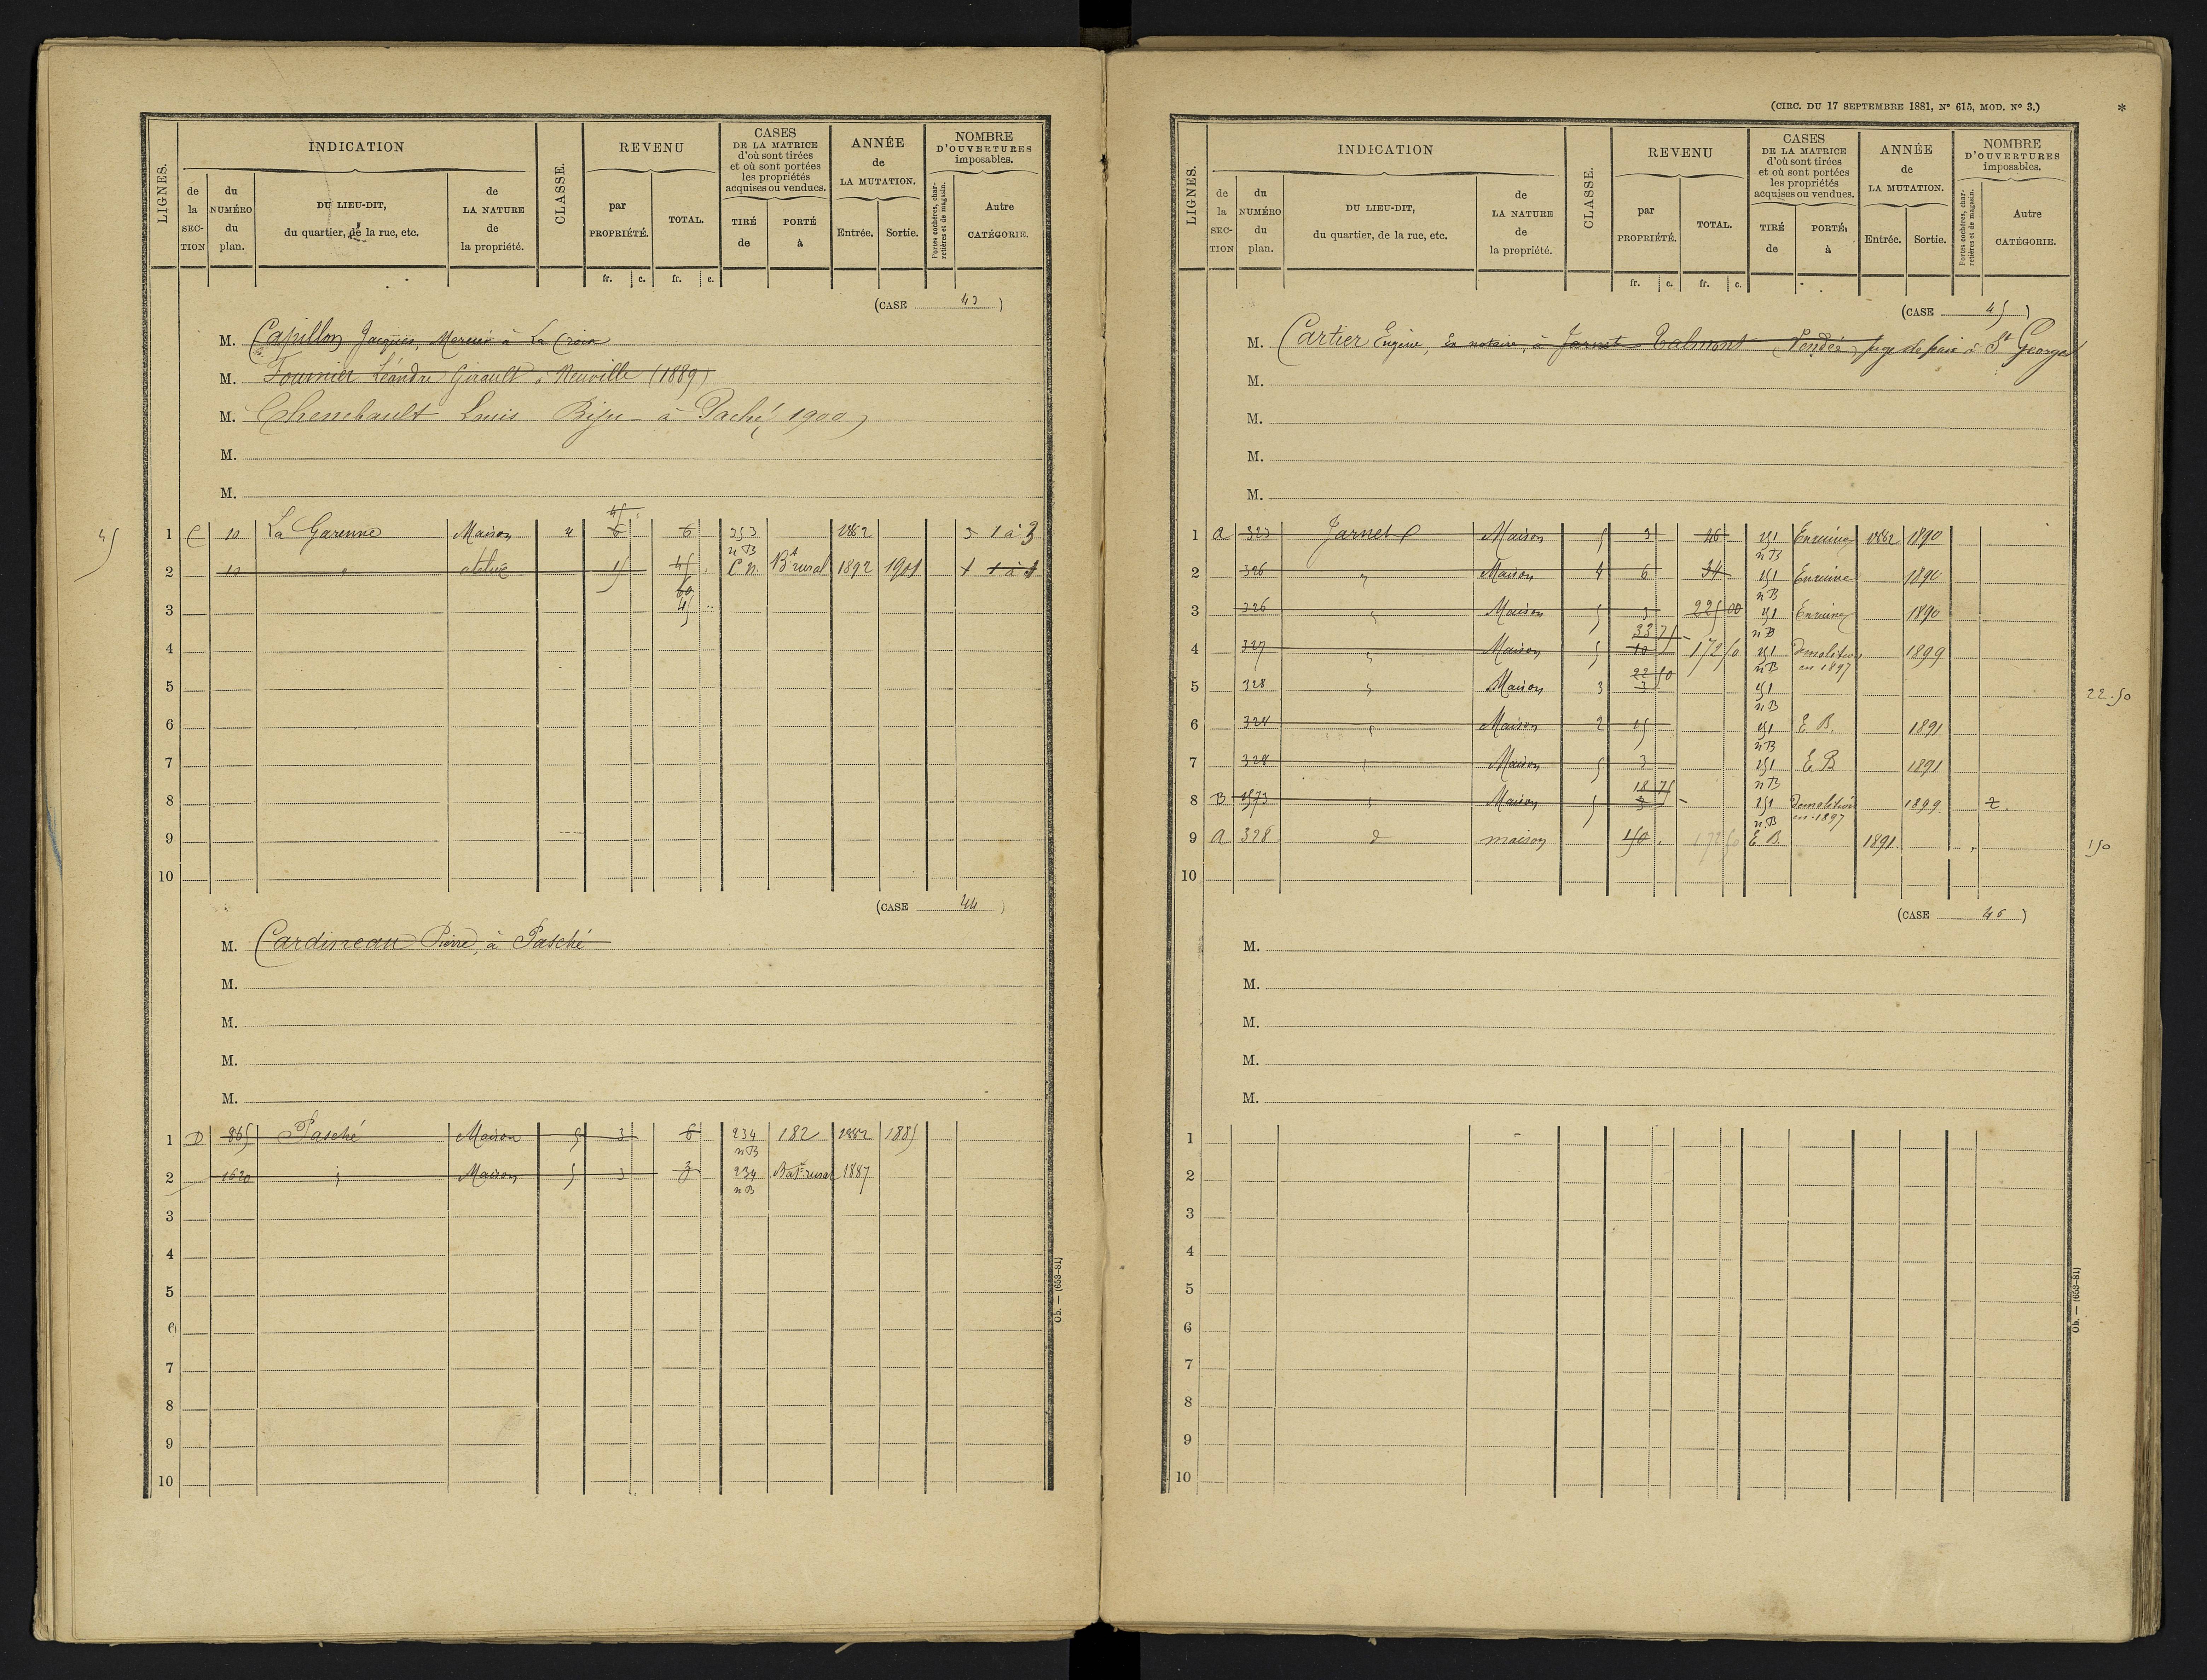 LIGNES.
INDICATION
CLASSE.
REVENU
CASES
DE LA MATRICE
d'où sont tirées
et où sont portées
les propriétés
acquises ou vendues.
ANNÉE
de
LA MUTATION.
NOMBRE
D'OUVERTURES
imposables.
de la SECTION
du NUMÉRO du plan.
DU LIEU-DIT,
du quartier, de la rue, etc.
de LA NATURE de la propriété.
par PROPRIÉTÉ.
TOTAL.
TIRÉ de
PORTÉ à
Entrée.
Sortie.
Portes cochères, charretières et de magasin.
Autre CATÉGORIE.
fr. c. fr. c.
(CASE 43)
M. Capillon Jacques, Mercier à La Croix
M. Fournier Léandre Girault à Neuville (1889)
M. Chenebault Louis à Paché, 1900
M.
M.
45
45
1 C 10 La Garenne Maison 4 6 6 353 1882 3 1 à 3
n B
2 10 " 15 45 C n. Bt rural 1892 1901 1 1 à 1
60
3 45
4
5
6
7
8
9
10
(CASE 44)
M. Cardineau Pierre, à Pasché
M.
M.
M.
M.
1 D 865 Pasché Maison 5 3 6 234 182 1882 1885
n B
2 1620 " Maison 5 3 3 234 Bat. rural 1887
n B
3
4
5
6
7
8
9
10
Ob. — (653-81)
(CIRC. DU 17 SEPTEMBRE 1881, N° 615, MOD. N° 3.)
*
LIGNES.
INDICATION
CLASSE.
REVENU
CASES
DE LA MATRICE
d'où sont tirées
et où sont portées
les propriétés
acquises ou vendues.
ANNÉE
de
LA MUTATION.
NOMBRE
D'OUVERTURES
imposables.
de la SECTION
du NUMÉRO du plan.
DU LIEU-DIT,
du quartier, de la rue, etc.
de LA NATURE de la propriété.
par PROPRIÉTÉ.
TOTAL.
TIRÉ de
PORTÉ à
Entrée.
Sortie.
Portes cochères, charretières et de magasin.
Autre CATÉGORIE.
fr. c. fr. c.
(CASE 45)
M. Cartier Eugène, Ex notaire, à Jarnet Talmont (Vendée) juge de paix à St Georges
M.
M.
M.
M.
1 A 323 Jarnet Maison 5 3 46 251 En ruine 1882 1890
n B
2 326 " Maison 4 6 34 251 En ruine 1890
n B
3 326 " Maison 5 3 225 00 251 En ruine 1890
33 75 n B
4 327 " Maison 5 10 172 50 251 Demolition 1899
22 50 n B en 1897
5 328 " Maison 3 3 251 22.50
n B
6 328 " Maison 2 15 251 E B. 1891
n B
7 328 " Maison 5 3 251 E B 1891
18 75 n B
8 B 1573 " Maison 5 3 251 Demolition 1899 2.
n. B en 1897
9 A 328 d maison 150 172 50 E B. 1891 150
10
(CASE 46)
M.
M.
M.
M.
M.
1
2
3
4
5
6
7
8
9
10
Ob. — (653-81)